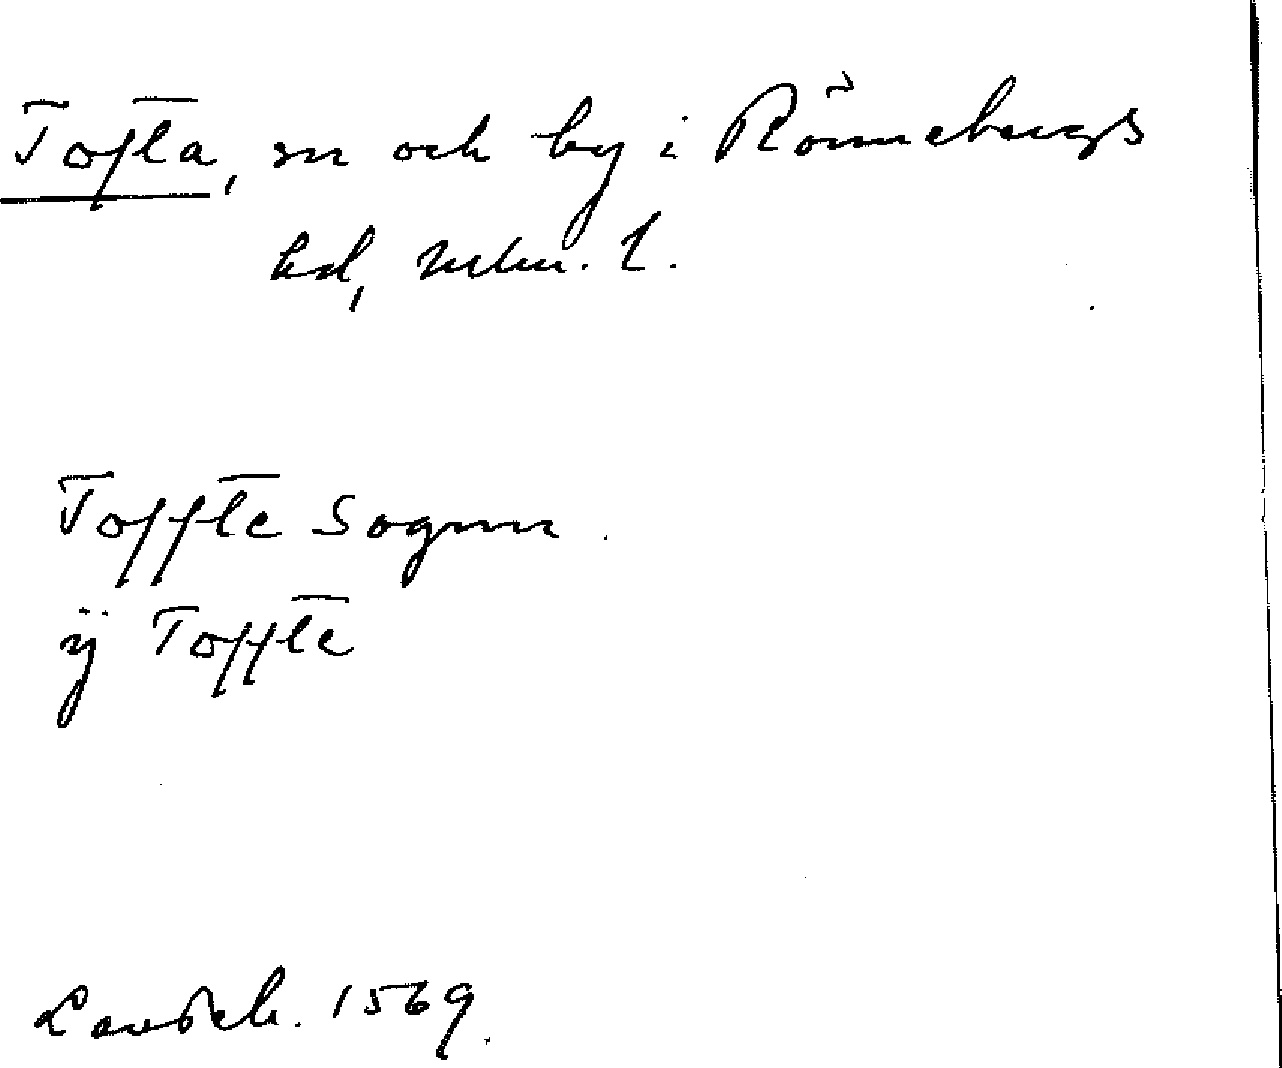 Tofta, sn och by i Rönnebergs
hd, Mlm. l.
Toffte Sognn
ÿ Toffte
Landeb. 1569.